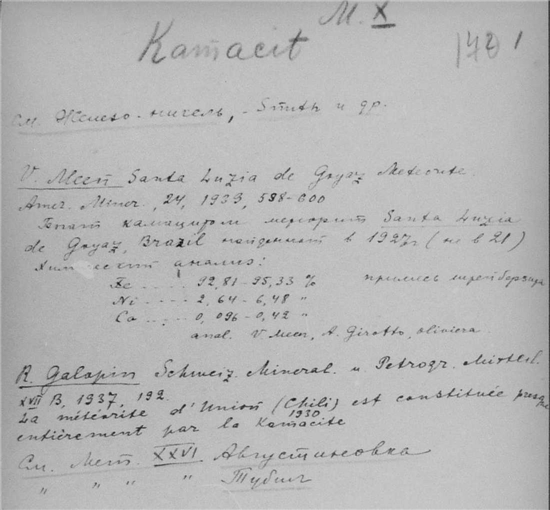 М. X
Kamacit
см. Железо-никель, - Smith и др.
V. Meen Santa Luzia de Goyaz Meteorite.
Amer. Miner., 24, 1939, 598-600
камацитом метеорит Santa Luzia
de Goyaz, Brazil найденный в 1927г (не в 21)
Химический анализ:
Fe .... 92,81-95,33 % примесь шрейберзита
Ni .... 2,64-6,48 "
Co .... 0,096-0,42 "
anal. V. Meen, A. Girotto, Oliviera.
R. Galopin Schweiz. Mineral. u. Petrogr. Mitteil.
XVII B, 1937, 192.
La météorite d'Union (Chili) est constituée presque
1930
entièrement par la Kamacite
См. Мет. XXVI Августиновка
" " " " Тубил